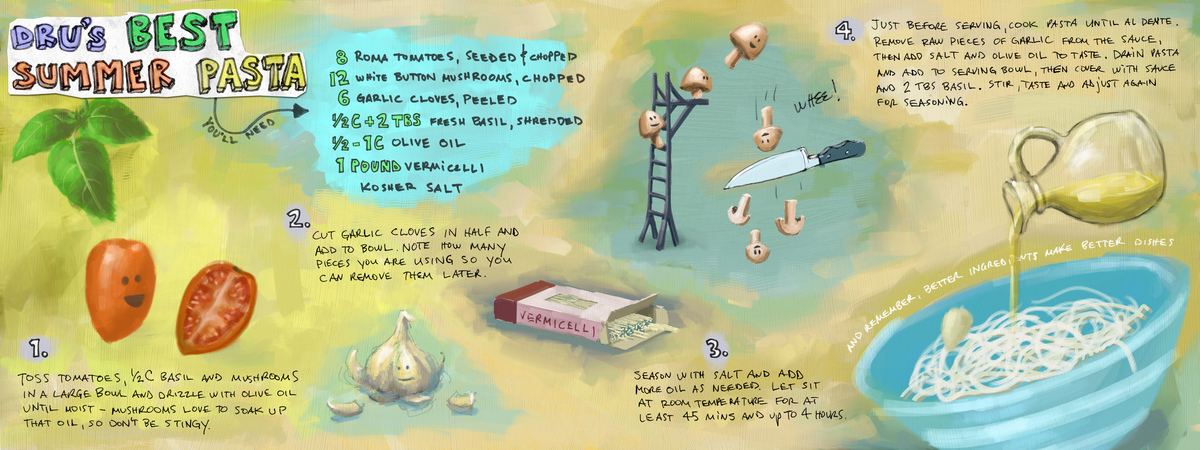 DRU'S BEST
SUMMER PASTA
YOU'LL NEED
8 ROMA TOMATOES, SEEDED & CHOPPED
12 WHITE BUTTON MUSHROOMS, CHOPPED
6 GARLIC CLOVES, PEELED
1/2 C + 2 TBS FRESH BASIL, SHREDDED
1/2 - 1 C OLIVE OIL
1 POUND VERMICELLI
KOSHER SALT
1.
TOSS TOMATOES, 1/2 C BASIL AND MUSHROOMS
IN A LARGE BOWL AND DRIZZLE WITH OLIVE OIL
UNTIL MOIST - MUSHROOMS LOVE TO SOAK UP
THAT OIL, SO DON'T BE STINGY.
2.
CUT GARLIC CLOVES IN HALF AND
ADD TO BOWL. NOTE HOW MANY
PIECES YOU ARE USING SO YOU
CAN REMOVE THEM LATER.
VERMICELLI
WHEE!
3.
SEASON WITH SALT AND ADD
MORE OIL AS NEEDED. LET SIT
AT ROOM TEMPERATURE FOR AT
LEAST 45 MINS AND UP TO 4 HOURS.
4.
JUST BEFORE SERVING, COOK PASTA UNTIL AL DENTE.
REMOVE RAW PIECES OF GARLIC FROM THE SAUCE,
THEN ADD SALT AND OLIVE OIL TO TASTE. DRAIN PASTA
AND ADD TO SERVING BOWL, THEN COVER WITH SAUCE
AND 2 TBS BASIL. STIR, TASTE AND ADJUST AGAIN
FOR SEASONING.
AND REMEMBER, BETTER INGREDIENTS MAKE BETTER DISHES